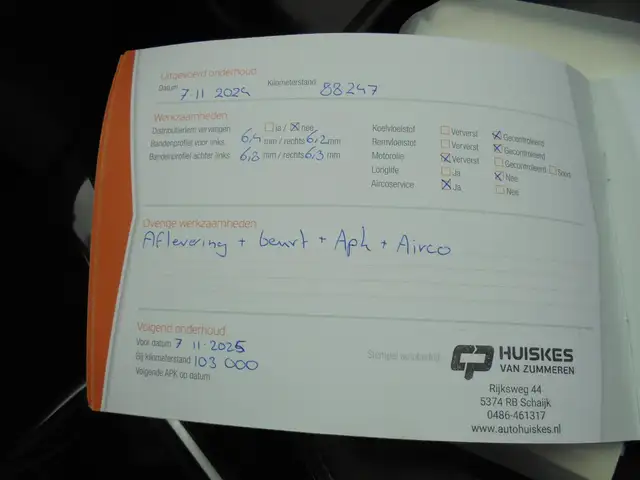 Uitgevoerd onderhoud
Datum 7.11 2024 Kilometerstand 88247
Werkzaamheden
Distributieriem vervangen ja / nee
Bandenprofiel voor links 6,4 mm / rechts 6,2 mm
Bandenprofiel achter links 6,8 mm / rechts 6,3 mm
Koelvloeistof Ververst Gecontroleerd
Remvloeistof Ververst Gecontroleerd
Motorolie Ververst Gecontroleerd
Longlife Ja Nee
Aircoservice Ja Nee
Overige werkzaamheden
Aflevering + beurt + Apk + Airco
Volgend onderhoud
Voor datum 7 11-2025
Bij kilometerstand 103 000
Volgende APK op datum
Stempel
HUISKES
VAN ZUMMEREN
Rijksweg 44
5374 RB Schaijk
0486-461317
www.autohuiskes.nl